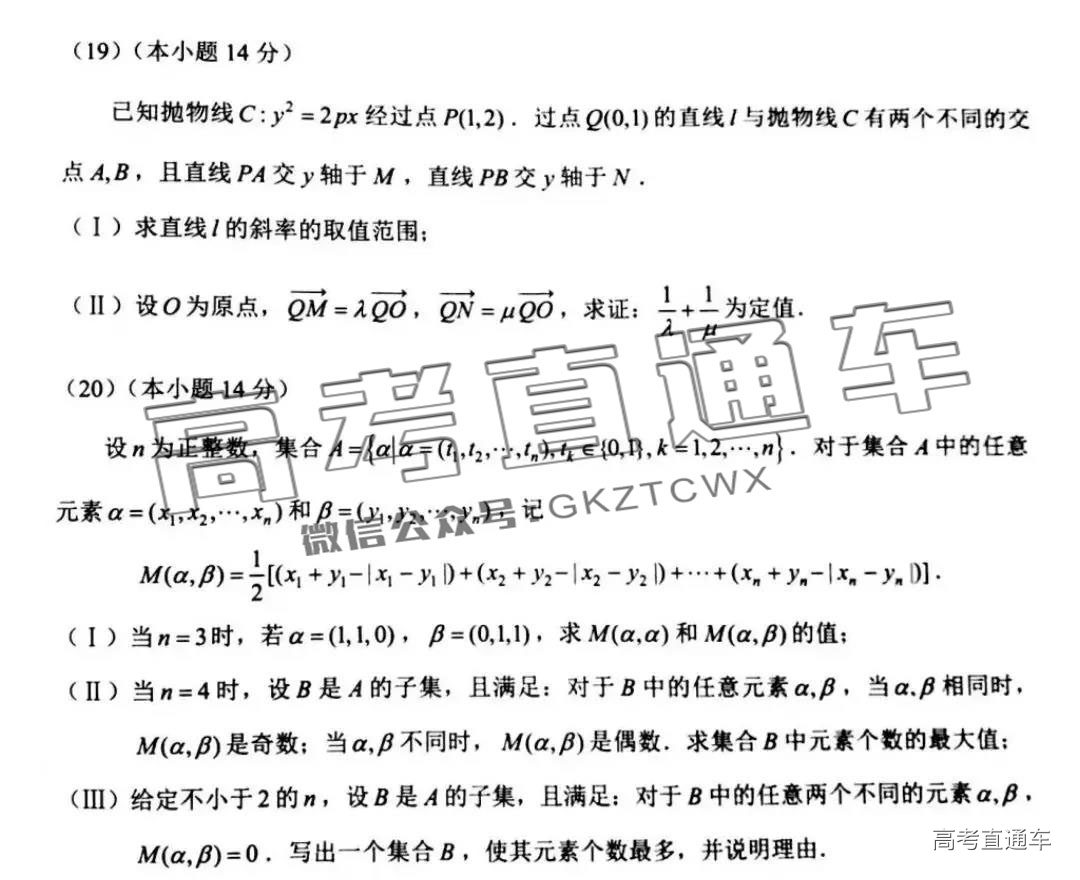 （19）（本小题 14 分）
已知抛物线 C : y² = 2px 经过点 P(1,2) ．过点 Q(0,1) 的直线 l 与抛物线 C 有两个不同的交
点 A,B ，且直线 PA 交 y 轴于 M ，直线 PB 交 y 轴于 N ．
（Ⅰ）求直线 l 的斜率的取值范围；
（Ⅱ）设 O 为原点， \overrightarrow{QM} = λ\overrightarrow{QO} ， \overrightarrow{QN} = μ\overrightarrow{QO} ，求证： \frac{1}{λ} + \frac{1}{μ} 为定值．
（20）（本小题 14 分）
设 n 为正整数，集合 A = {α|α = (t₁,t₂,⋯,tₙ), tₖ ∈ {0,1}, k = 1,2,⋯,n} ．对于集合 A 中的任意
元素 α = (x₁,x₂,⋯,xₙ) 和 β = (y₁,y₂,⋯,yₙ) ，记
M(α,β) = \frac{1}{2}[(x₁ + y₁ − | x₁ − y₁ |) + (x₂ + y₂ − | x₂ − y₂ |) + ⋯ + (xₙ + yₙ − | xₙ − yₙ |)] ．
（Ⅰ）当 n = 3 时，若 α = (1,1,0) ， β = (0,1,1) ，求 M(α,α) 和 M(α,β) 的值；
（Ⅱ）当 n = 4 时，设 B 是 A 的子集，且满足：对于 B 中的任意元素 α,β ，当 α,β 相同时，
M(α,β) 是奇数；当 α,β 不同时， M(α,β) 是偶数．求集合 B 中元素个数的最大值；
（Ⅲ）给定不小于 2 的 n ，设 B 是 A 的子集，且满足：对于 B 中的任意两个不同的元素 α,β ，
M(α,β) = 0 ．写出一个集合 B ，使其元素个数最多，并说明理由．
高考直通车
微信公众号:GKZTCWX
高考直通车